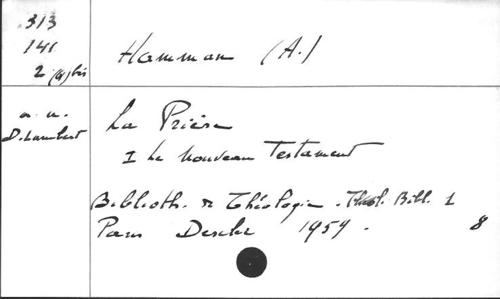 313
141
2 (4) bis
Hamman (A.)
a. u.
D. Lambert
La Prière
I Le Nouveau Testament
Biblioth. de Théologie. Théol. Bibl. 1
Paris Desclée 1959.
8